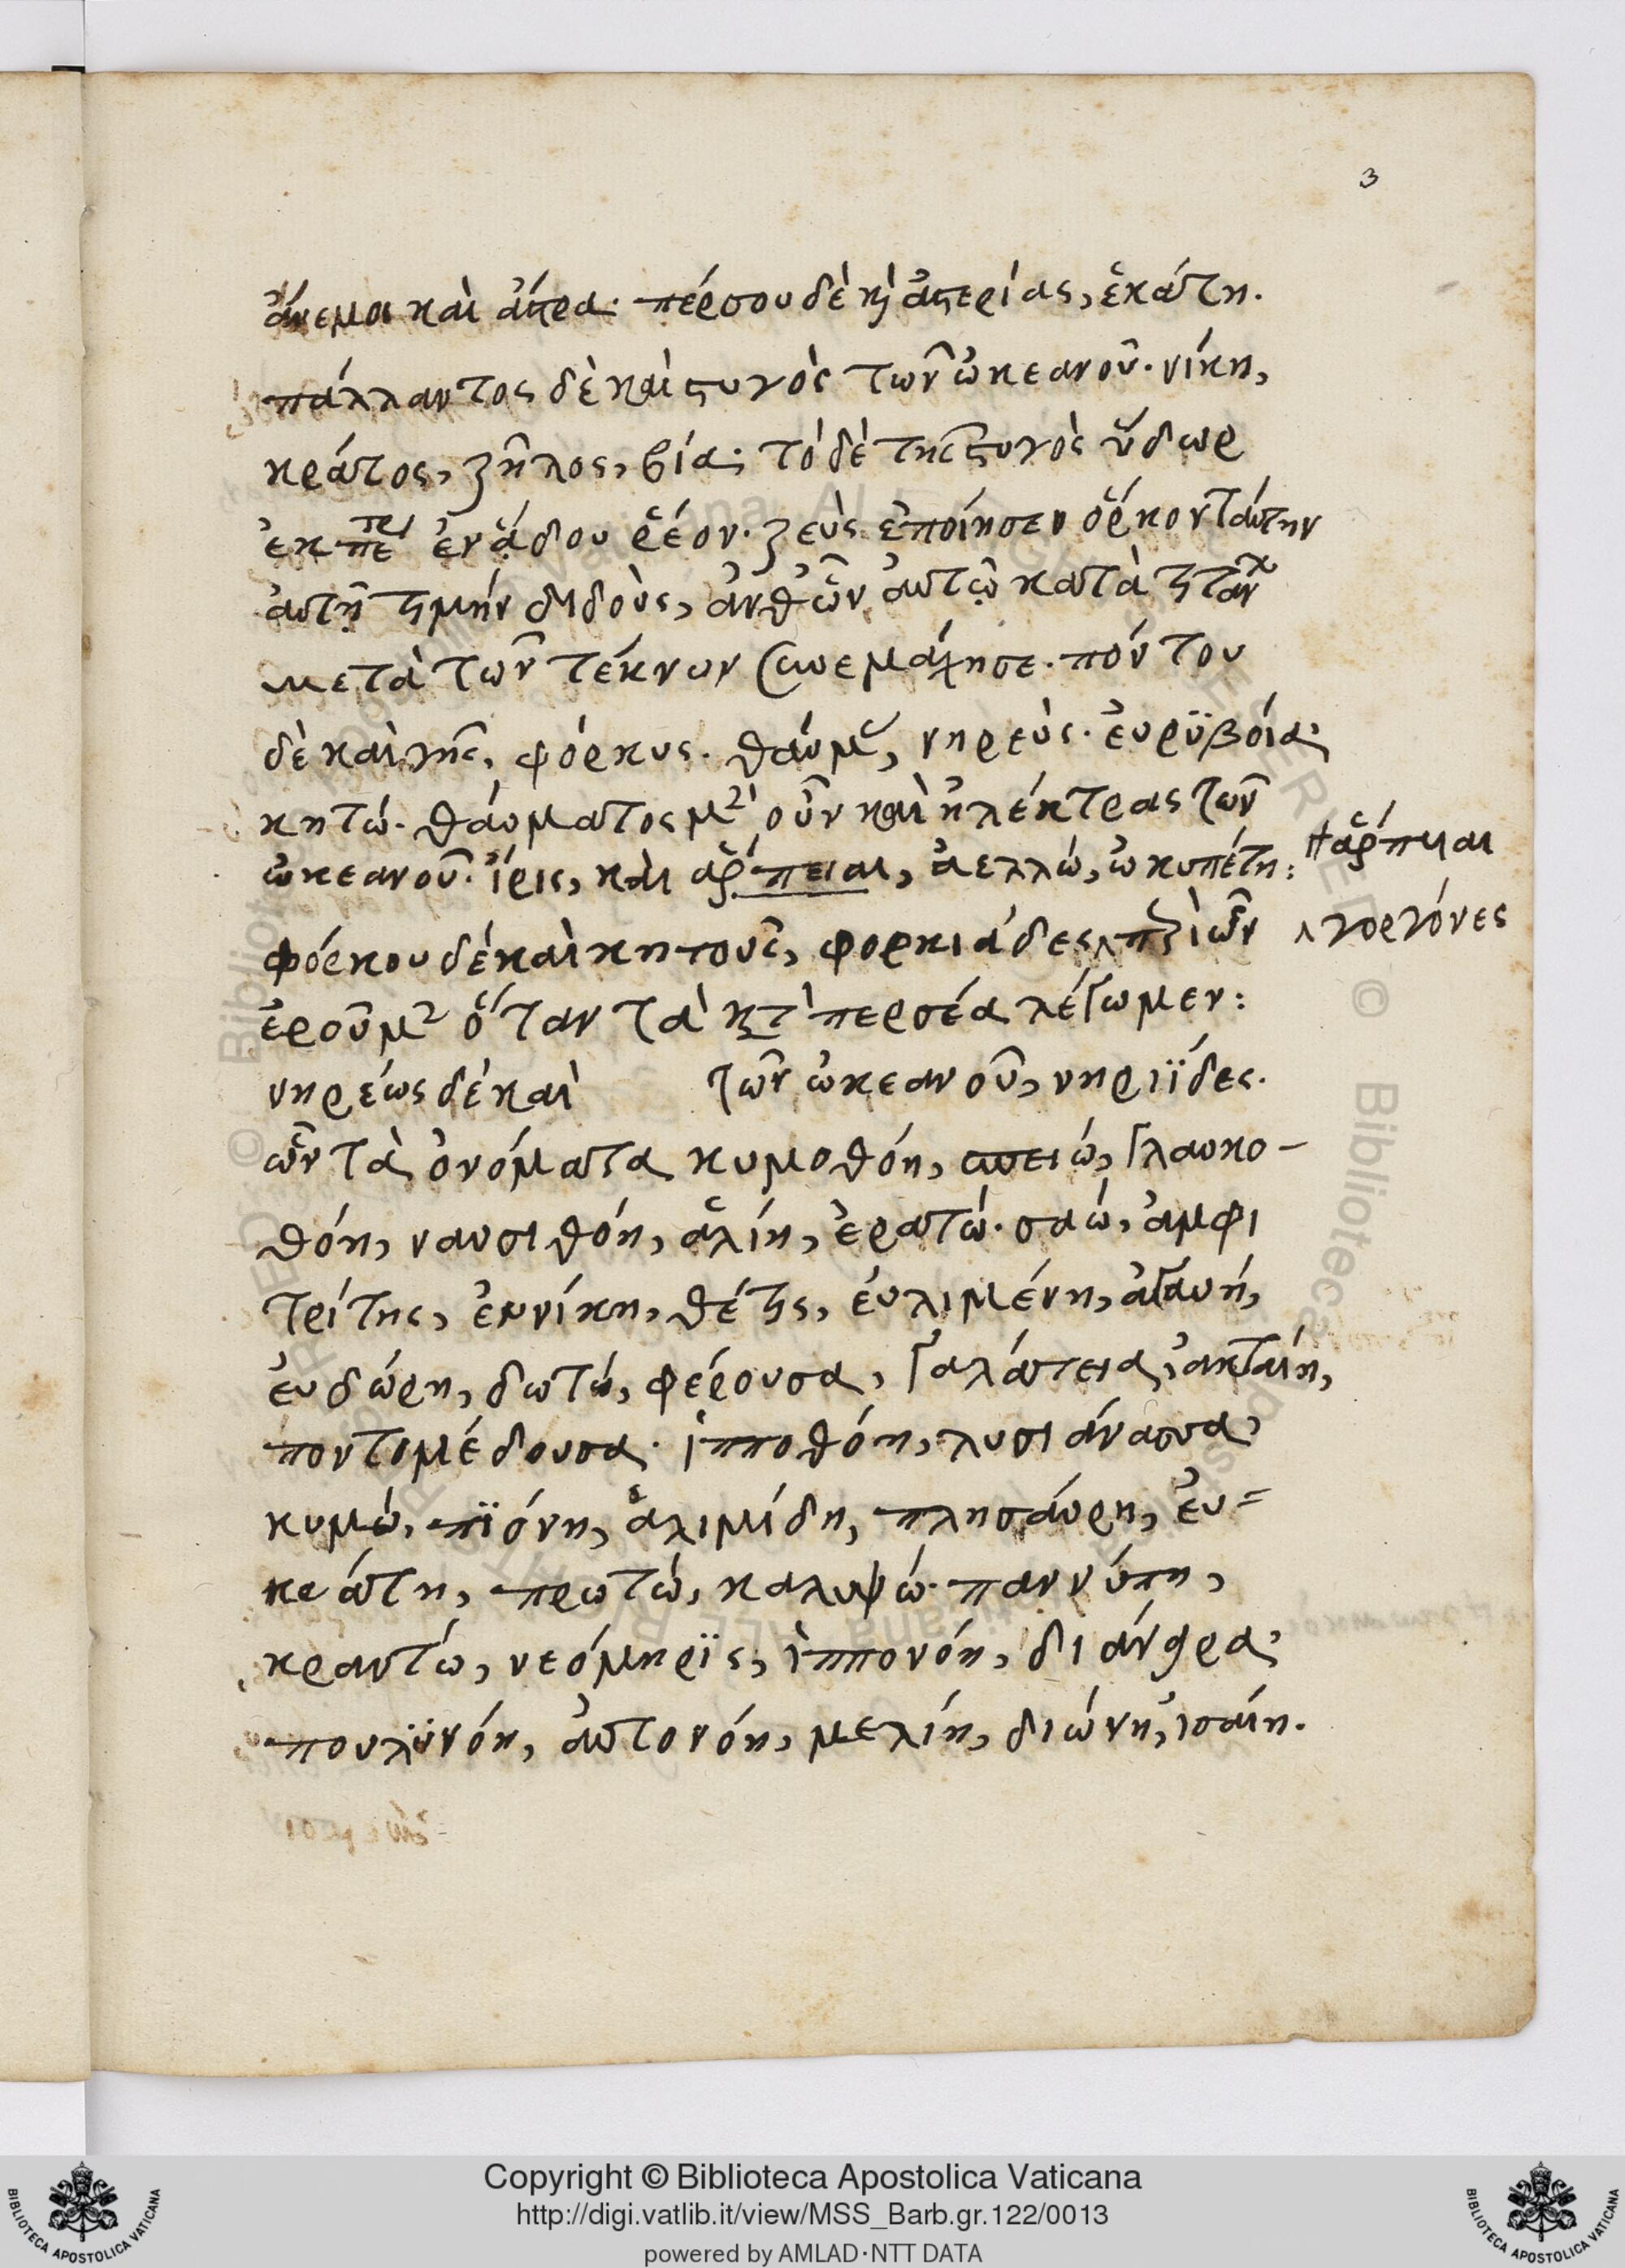 3
ἄνεμοι καὶ ἄστρα· πέρσου δὲ καὶ ἀστερίας, ἑκάτη.
πάλλαντος δὲ καὶ στυγὸς τῶν ὠκεανοῦ· νίκη,
κράτος, ζῆλος, βία· τὸ δὲ τῆς στυγὸς ὕδωρ
ἐν ᾅδου ῥέον· ζεὺς ἐποίησεν ὅρκον ταύτην
αὐτῇ τιμὴν διδοὺς, ἀνθ ὧν αὐτῷ κατὰ
μετὰ τῶν τέκνων συνεμάχησε· πόντου
δὲ καὶ γῆς, φόρκυς· θαύμας, νηρεὺς· ἐυρϋβόια,
κητώ· θάυματος μὲν οὖν καὶ ἠλέκτρας τῶν
ὠκεανοῦ· ἶρις, καὶ ἅρπειαι, ἀελλώ, ὠκυπέτη:
ἅρπυιαι
φόρκου δὲ καὶ κητοῦς, φορκιάδες περὶ ὧν
γοργόνες
ἐροῦμεν ὅταν τὰ κατὰ περσέα λέγωμεν:
νηρέως δὲ καὶ τῶν ὠκεανοῦ, νηριΐδες.
ὧν τὰ ὀνόματα κυμοθόη, σπειώ, γλαυκο-
θόη, ναυσιθόη, ἁλίη, ἐρατώ· σαώ, ἀμφι
τρίτης, ἐυνίκη, θέτις, ἐυλιμένη, ἀγαυή,
ἐυδώρη, δωτώ, φέρουσα, γαλάτεια, ἀκταίη,
ποντομέδουσα· ἱπποθόη, λυσιάνασσα,
κυμώ, πϊόνη, ἁλιμίδη, πλησάυρη, ἐυ=
κράτη, πρωτώ, καλυψώ· παννύπη,
κραντώ, νεόμηρϊς, ἱππονόη, διάνειρα,
πουλϋνόη, ἀυτονόη, μελίη, διώνη, ἰσαίη.
Copyright © Biblioteca Apostolica Vaticana
http://digi.vatlib.it/view/MSS_Barb.gr.122/0013
powered by AMLAD·NTT DATA
BIBLIOTECA APOSTOLICA VATICANA
BIBLIOTECA APOSTOLICA VATICANA